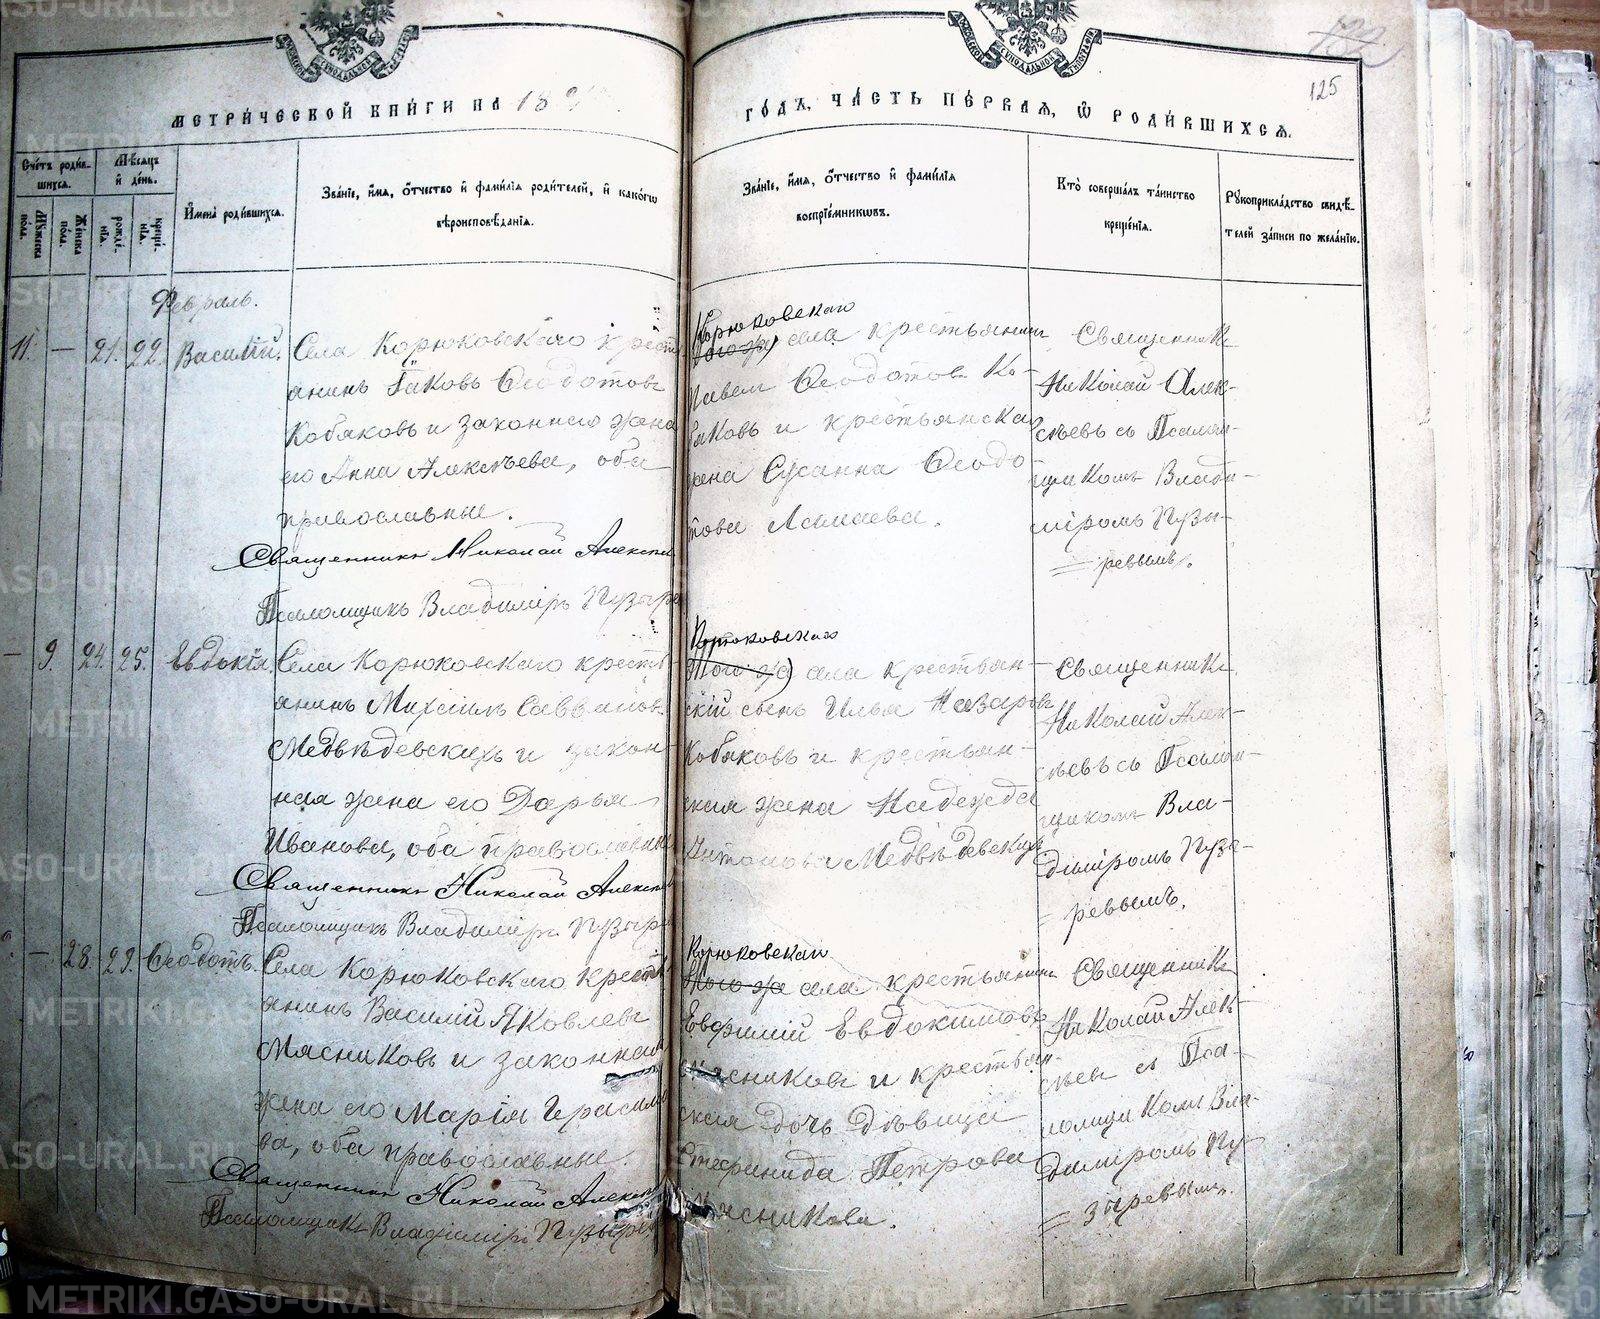 МЕТРИ́ЧЕСКОЙ КНИ́ГИ НА 18
ГО́ДЪ, ЧА́СТЬ ПЕ́РВАЯ, Ѡ РОДИ́ВШИХСЯ.
125
Сче́тъ роди́в-
шихся.
Мꙋ́жеска
пола.
Же́нска
пола.
Мѣ́сяцъ
и де́нь.
рожде́-
нїя.
креще́-
нїя.
И҆мена̀ роди́вшихся.
Зва́нїе, и҆́мя, ѻ҆́тчество и҆ фами́лїя роди́телей, и҆ како́гѡ
вѣроисповѣ́данїя.
Зва́нїе, и҆́мя, ѻ҆́тчество и҆ фами́лїя
воспрїе́мникѡвъ.
Кто̀ соверша́лъ та́инство
креще́нїя.
Рꙋкоприкла́дство свидѣ́-
телей за́писи по жела́нїю.
Февраль.
11. — 21. 22. Василій.
Села Корюковскаго крест
анинъ Іаковъ Ѳеодотовъ
Кобяковъ и законная жена
его Анна Алексѣева, оба
православные.
Священникъ Николай Алексѣ
Псаломщикъ Владиміръ Пузыре
Корюковскаго
Того же села крестьянинъ
Павелъ Ѳеодотовъ Ко-
бяковъ и крестьянская
жена Сусанна Ѳеодо-
това
Священникъ
Николай Алек-
сѣевъ съ Псалом-
щикомъ Влади-
міромъ Пузы-
= ревымъ.
— 9. 24. 25. Евдокія.
Села Корюковскаго кресть-
янинъ Михаилъ Саввинов
Медвѣдевскихъ и закон-
ная жена его Дарья
Иванова, оба православные
Священникъ Николай Алексѣ
Псаломщикъ Владиміръ Пузыре
Корюковскаго
Того же села крестьян-
скій сынъ Илья Назаровъ
Кобяковъ и крестьян-
ская жена Надежда
Антонова Медвѣдевскихъ
Священникъ
Николай Алек-
сѣевъ съ Псалом-
щикомъ Вла-
диміромъ Пузы-
= ревымъ.
— 28. 29. Ѳеодотъ.
Села Корюковскаго кресть
янинъ Василій Яковлевъ
Мясниковъ и законная
жена его Марія Герасимо
ва, оба православные.
Священникъ Николай Алексѣ
Псаломщикъ Владиміръ Пузыре
Корюковскаго
Того же села крестьянинъ
Евфимій Евдокимовъ
Мясниковъ и крестьян-
ская дочь дѣвица
Екатеринида Петрова
Мясникова.
Священникъ
Николай Алек-
сѣевъ съ Пса-
ломщикомъ Вла-
диміромъ Пу-
= зыревымъ.
METRIKI.GASO-URAL.RU